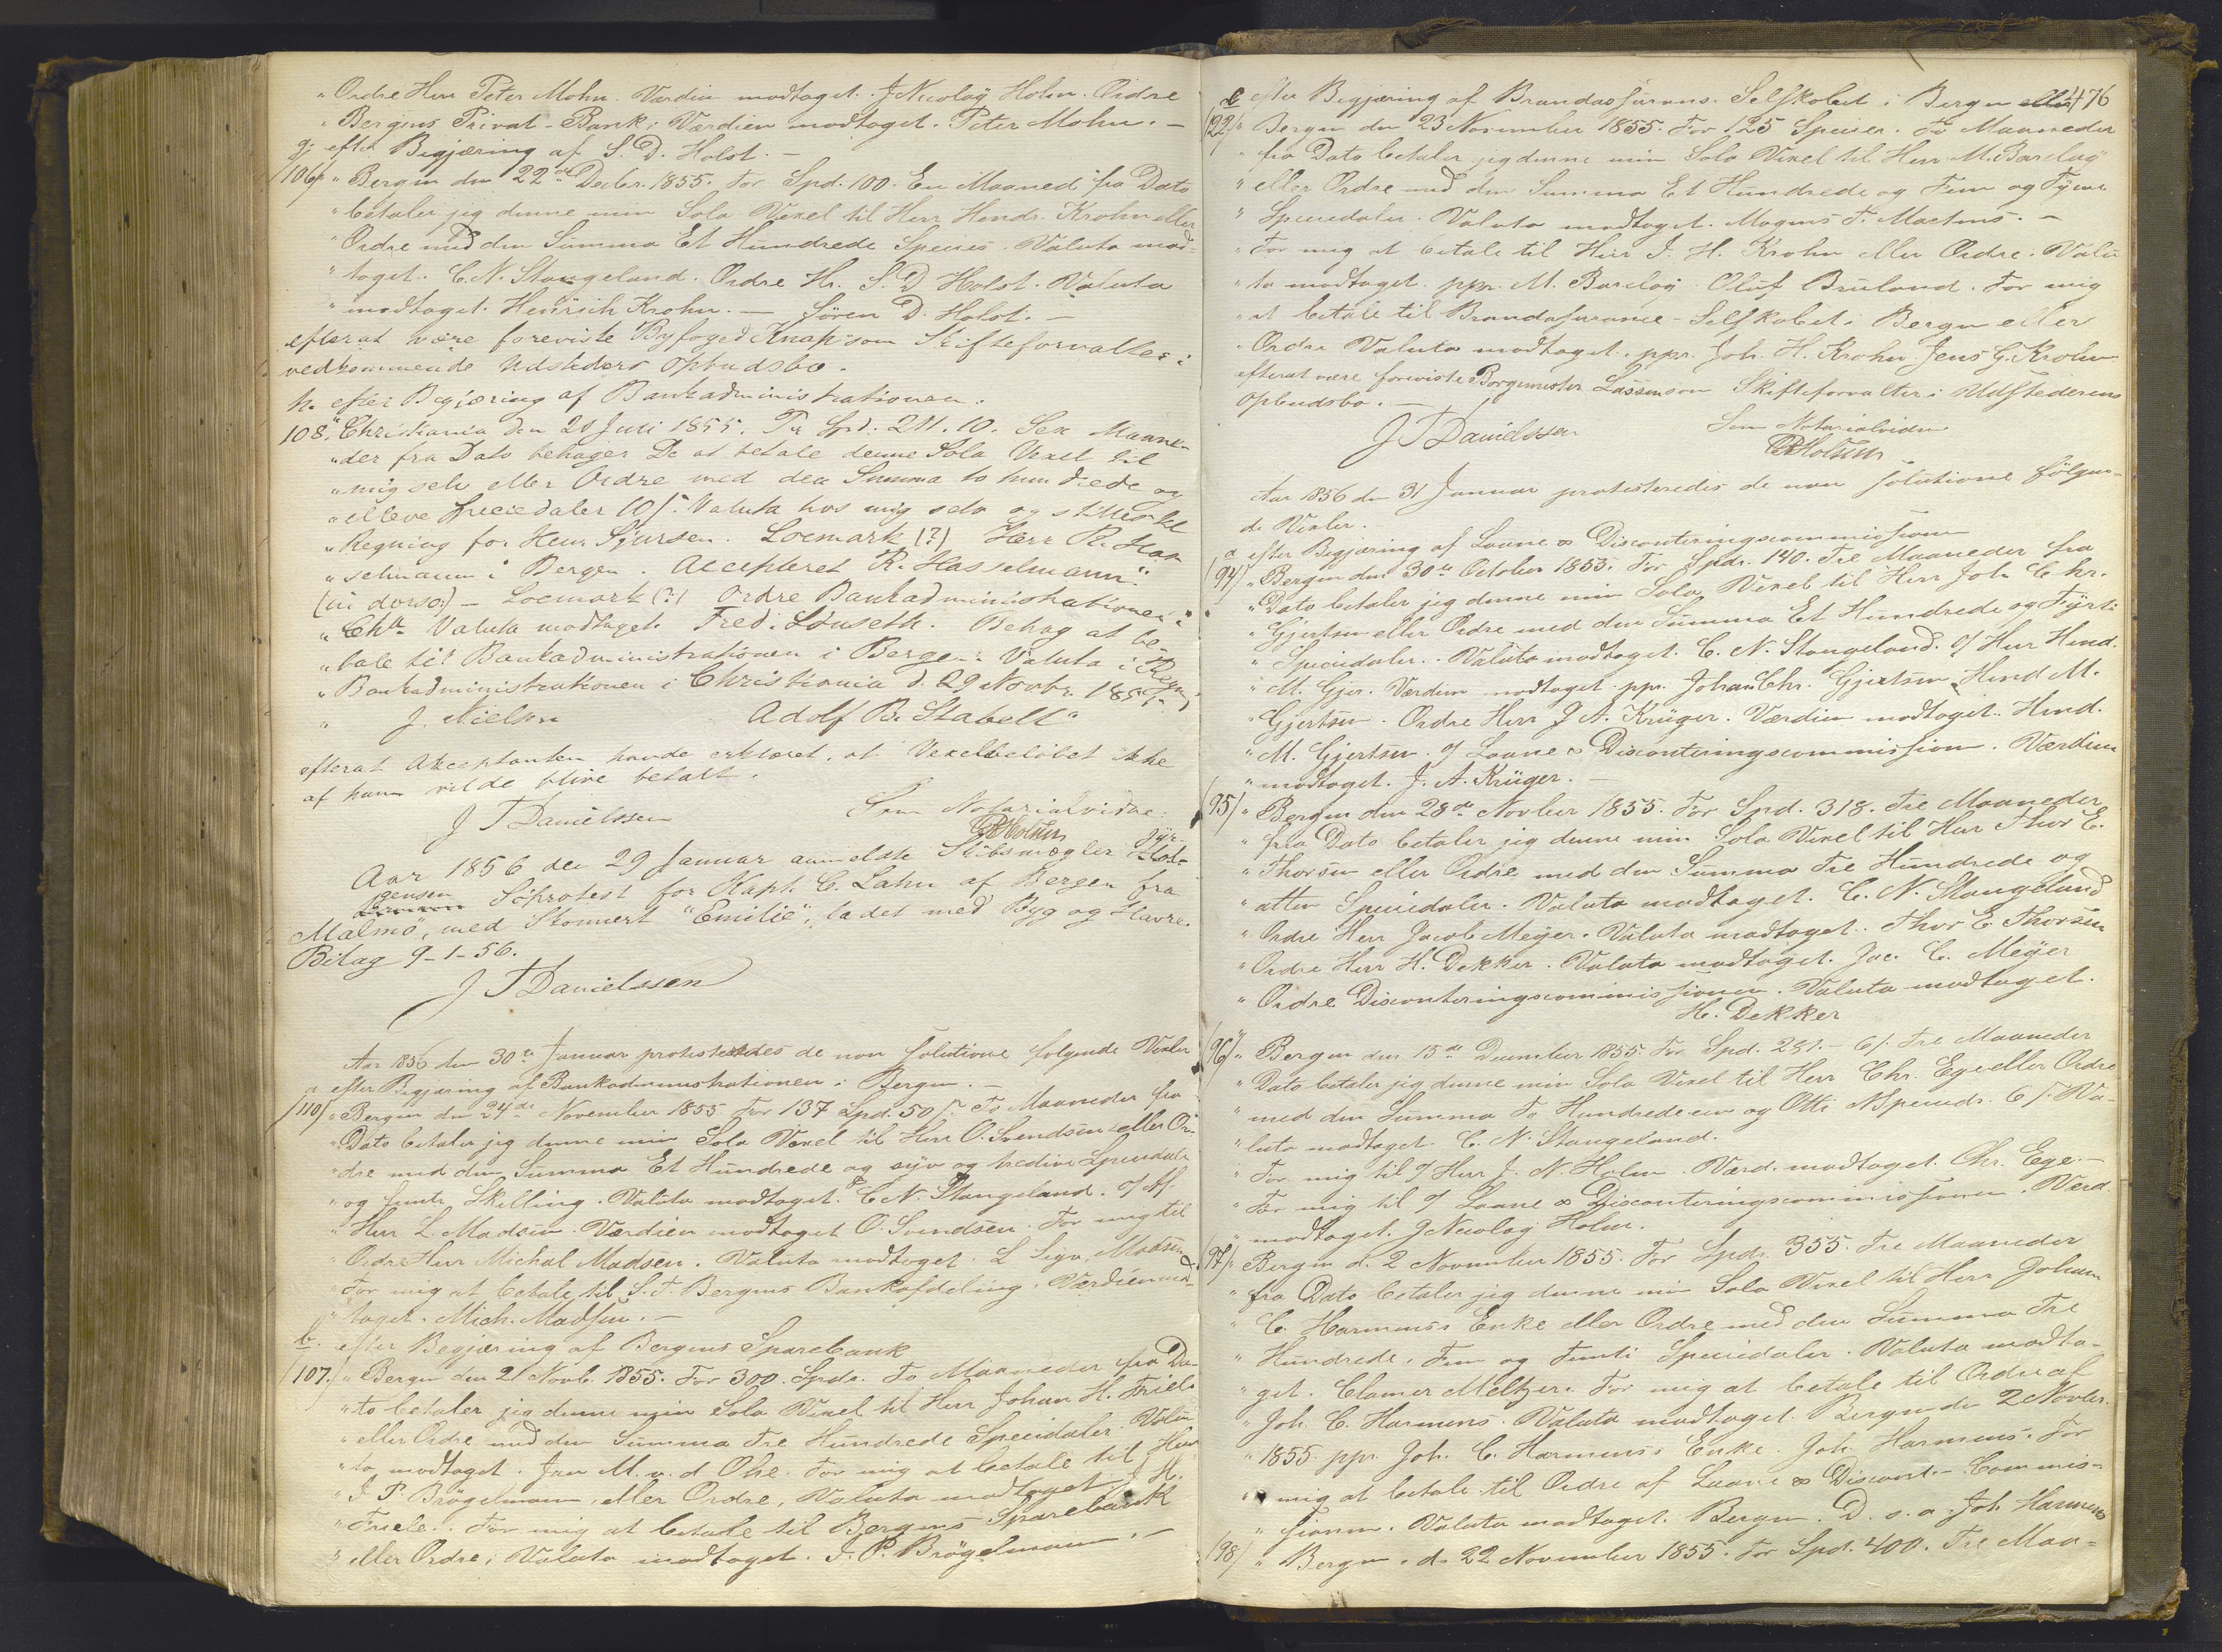 " Ordre Herr Peter Mohn. Værdien modtaget. J Nicolaÿ Holm. Ordre
" Bergens Privat-Bank; Værdien modtaget. Peter Mohn. —
g; efter Begjæring af S. D. Holst. —
/106/. " Bergen den 22de Decbr. 1855. For Spd. 100. En Maaned fra Dato
" betaler jeg denne min Sola Vexel til Herr Hendr. Krohn eller
" Ordre med den Summa Et Hundrede Species. Valuta mod-
" taget. C. N. Stangeland. Ordre Hr. S. D Holst. Valuta
" modtaget. Henrich Krohn. — Sören D. Holst. —
efterat være foreviste Byfoged Knap som Skifteforvalter i
vedkommende Udsteders Opbudsbo.
h. efter Begjæring af Bankadministrationen.
108. " Christiania den 20 Juli 1855. For Spd. 211. 10. Sex Maane-
" der fra Dato behager De at betale denne Sola Vexel til
" mig selv eller Ordre med den Summa to hundrede og
" elleve Speciedaler 10 s. Valuta hos mig selv og stilles til
" Regning for Henr. Sjursen. Locmark (?) Herr R. Has
" selmann i Bergen. Accepteret R. Hasselmann".
(in dorso:) — Locmark (?) Ordre Bankadministrationen i
" Chra. Valuta modtaget. Fred. Lönseth. Behag at be-
" tale til Bankadministrationen i Bergen. Valuta i Regn.
" Bankadministrationen i Christiania d. 29 Novbr. 1855.
" J. Nielsen Adolf B. Stabell"
efterat Akceptanten havde erklæret, at Vexelbeløbet ikke
af ham vilde blive betalt.
J T Danielssen Som Notarialvidne:
Aar 1856 den 29 Januar anmeldte Skibsmægler Jör-
gensen Söprotest for Kapt. C. Lahn af Bergen fra
Malmö, med Skonnert "Emilie", ladet med Byg og Havre.
Bilag 9-1-56.
J T Danielssen
Aar 1856 den 30te Januar protesteredes de non solutione folgende Vexler
a efter Begjæring af Bankadministrationen i Bergen. —
/110/. " Bergen den 24de November 1855. For 137 Spd. 50 s. To Maaneder fra
" Dato betaler jeg denne min Sola Vexel til Herr O. Svendsen eller Or-
" dre med den Summa Et Hundrede og syv og tredive Speciedaler
" og femti Skilling. Valuta modtaget. C. N. Stangeland.
" Herr L. Madsen. Værdien modtaget O. Svendsen. For mig til
" Ordre Herr Michal Madsen. Valuta modtaget. L Madsen
" For mig at betale til S. F. Bergens Bankafdeling. Værdien mod-
" taget. Mich. Madsen. —
b. efter Begjæring af Bergens Sparebank
/107/. " Bergen den 21 Novb. 1855. For 300. Spdr. To Maaneder fra Da-
" to betaler jeg denne min Sola Vexel til Herr Johan H. Friele
" eller Ordre med den Summa Tre Hundrede Speciedaler. Valu-
" ta modtaget. Jan M. v. d Ohe. For mig at betale til Herr
" J. P. Brögelmann, eller Ordre, Valuta modtaget J. H.
" Friele. For mig at betale til Bergens Sparebank
" eller Ordre; Valuta modtaget. J. P. Brögelmann. —
476
e efter Begjæring af Brandassurans. Selskabet i Bergen eller
/122/. " Bergen den 23 November 1855. For 125 Species. To Maaneder
" fra Dato betaler jeg denne min Sola Vexel til Herr M. Barclaÿ
" eller Ordre med den Summa Et Hundrede og Fem og Tyve
" Speciedaler. Valuta modtaget. Mogens T. Martens. —
" For mig at betale til Herr J. H. Krohn eller Ordre. Valu-
" ta modtaget. ppr. M. Barclaÿ. Oluf Bruland. For mig
" at betale til Brandassurance-Selskabet i Bergen eller
" Ordre Valuta modtaget. ppr. Joh. H. Krohn. Jens G. Krohn
efterat være foreviste Borgemester Lassen som Skifteforvalter i Udstederens
Opbudsbo. —
J T Danielssen Som Notarialvidne
Aar 1856 den 31 Januar protesteredes de non solutione fölgen-
de Vexler.
a efter Begjæring af Laane & Disconteringscommission
/94/. " Bergen den 30te October 1855. For Spdr. 140. Tre Maaneder fra
" Dato betaler jeg denne min Sola Vexel til Herr Joh. Chr.
" Gjertsen eller Ordre med den Summa Et Hundrede og Fyrti
" Speciedaler. Valuta modtaget. C. N. Stangeland. O/ Herr Hend.
" M. Gjer. Værdien modtaget ppr. Johan Chr. Gjertsen Hend M.
" Gjertsen. Ordre Herr J A. Krüger. Værdien modtaget. Hend.
" M. Gjertsen. O/ Laane & Disconteringscommission. Værdien
" modtaget. J. A. Krüger. —
/95/ " Bergen den 28de Novber 1855. For Spd. 318. Tre Maaneder
" fra Dato betaler jeg denne min Sola Vexel til Herr Thor E.
" Thorsen eller Ordre med den Summa Tre Hundrede og
" atten Speciedaler. Valuta modtaget. C. N. Stangeland
" Ordre Herr Jacob Meÿer. Valuta modtaget. Thor E. Thorsen
" Ordre Herr H. Dekker. Valuta modtaget. Jac. C. Meÿer
" Ordre Disconteringscommissionen. Valuta modtaget.
H. Dekker
/96/ " Bergen den 15de December 1855. For Spd. 281. — 6 s. Tre Maaneder
" Dato betaler jeg denne min Sola Vexel til Herr Chr. Ege eller Ordre
" med den Summa To Hundrede een og Otti Speciedr. 6 s. Va-
" luta modtaget. C. N. Stangeland.
" For mig til O/ Herr J. N. Holm. Værd. modtaget. Chr. Ege. —
" For mig til O/ Laane & Disconteringscommissionen. Værd.
" modtaget. J Nicolaÿ Holm.
/97/. " Bergen d. 2 November 1855. For Spdr. 355. Tre Maaneder
" fra Dato betaler jeg denne min Sola Vexel til Herr Johan
" C. Harmens's Enke eller Ordre med den Summa Tre
" Hundrede, Fem og Femti Speciedaler. Valuta modta-
" get. Clamer Meltzer. For mig at betale til Ordre af
" Joh. C. Harmens. Valuta modtaget. Bergen den 2 Novbr.
" 1855. ppr. Joh. C. Harmens's Enke. Joh. Harmens. For
" mig at betale til Ordre af Laane & Discont.- Commis-
" sionen. Valuta modtaget. Bergen. D. s. a. Joh Harmens
/98/ " Bergen. d. 22 November 1855. For Spd. 400. Tre Maa-